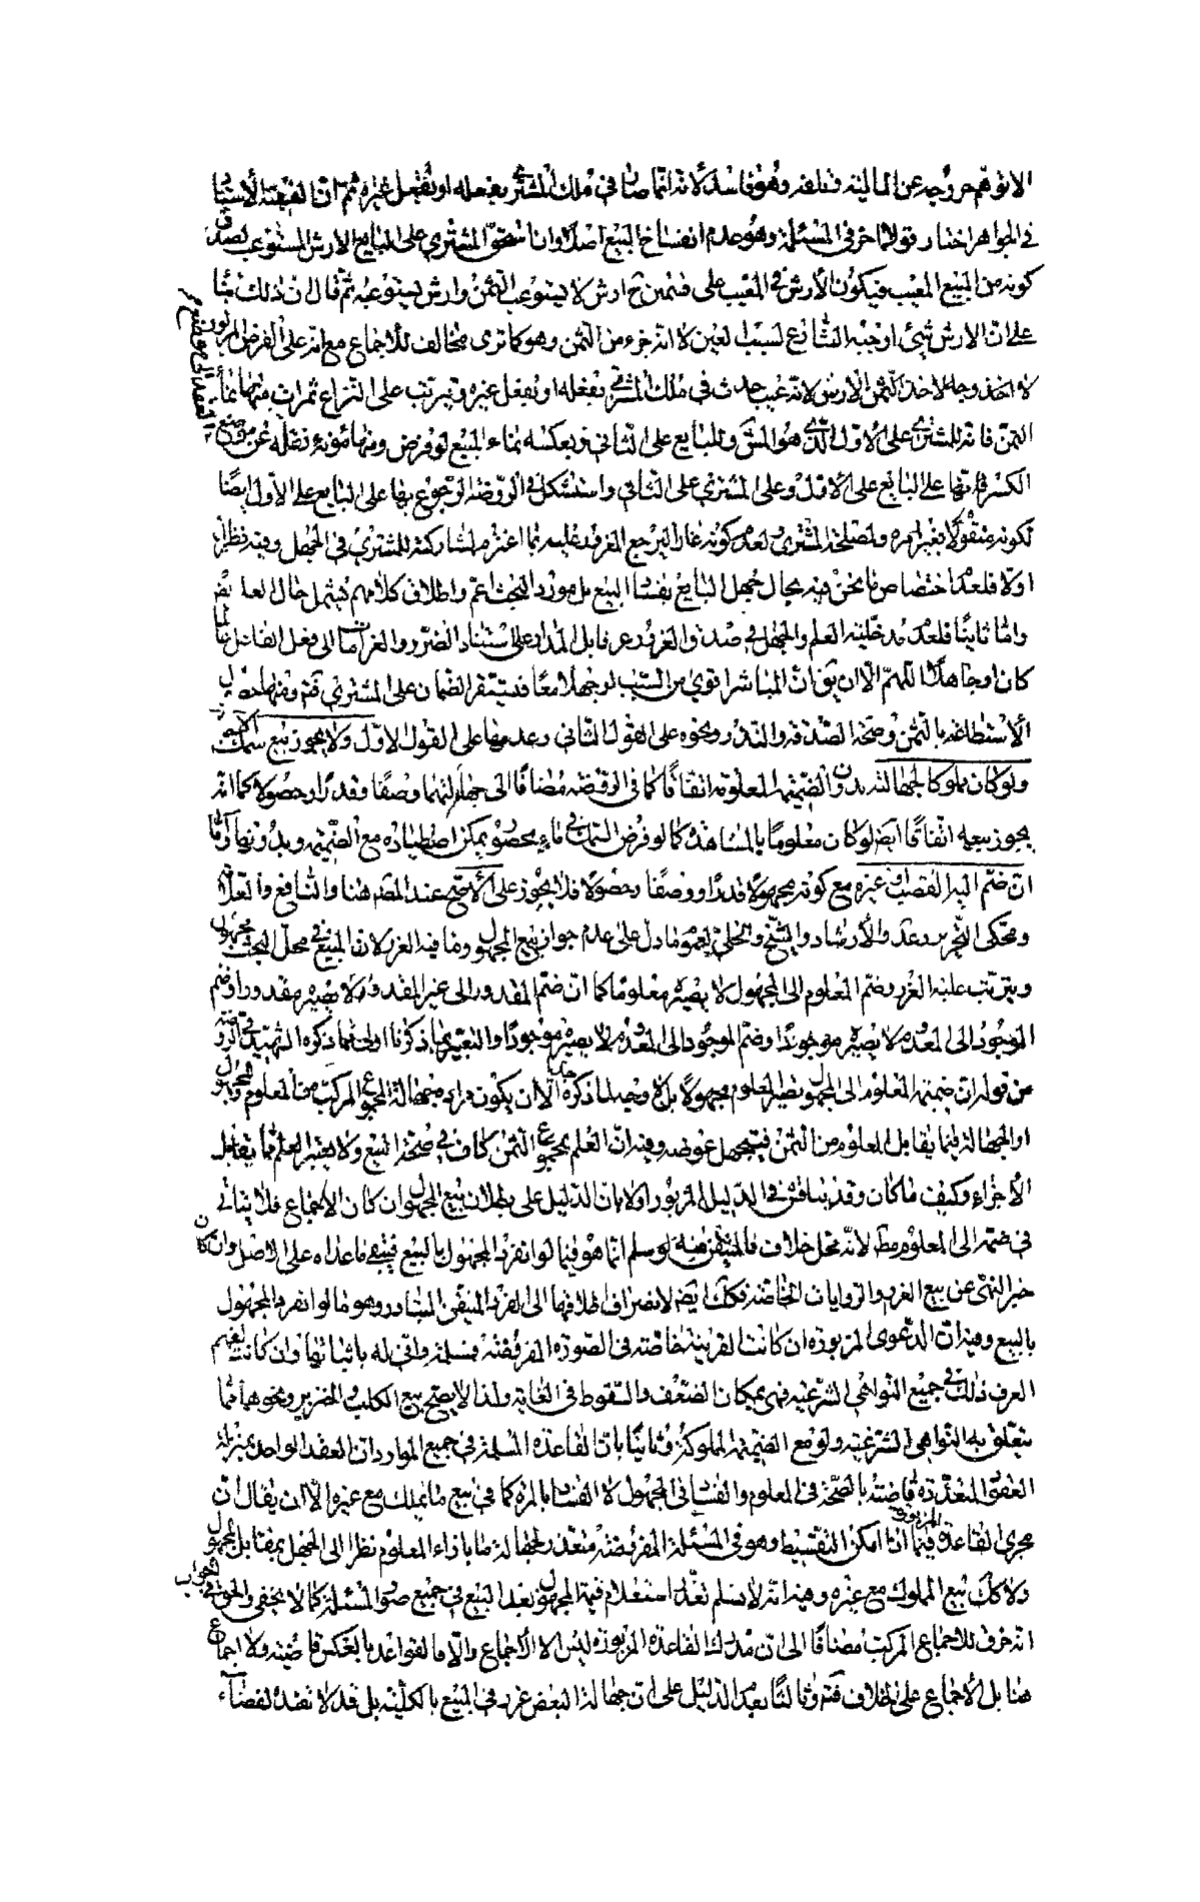 الا توهم خروجه عن المالية فتلفه وهو فاسد لانه انما صار في ملك المشتري بفعله او بفعل غيره ثم ان الفقيه الاستاد
في الجواهر اختار قولا اخر في المسئلة وهو عدم انفساخ البيع اصلا وان استحق المشتري على البايع الارش المستوعب لصدق
كونه من المبيع المعيب فيكون الأرش في المعيب على قسمين ح ارش لا يستوعب الثمن وارش يستوعبه ثم قال ان ذلك مما
على ان الارش شيء اوجبه الشارع لسبب العين لا انه جزء من الثمن وهو كما ترى مخالف للاجماع مع انه على الفرض المزبور
لا وجه لاخذ الثمن الارش لانه عيب حدث في ملك المشتري بفعله او بفعل غيره ويترتب على النزاع ثمرات منها نماء
الثمن فانه للمشتري على الاول هو المش وللبايع على الثاني وبعكسه نماء المبيع لو فرض ومنها مؤنة نقله عن موضع
الكسر فانها على البايع على الاول وعلى المشتري على الثاني واستشكل في الروضة الرجوع بها على البايع على الاول ايضا
لكونه منقولا بغير امره ولمصلحة المشتري ولعدم كونه غارا ليرجع المغرور عليه بما اغترم لمشاركته للمشتري في الجهل وفيه نظر اما
اولا فلعدم اختصاص ما نحن فيه بحال جهل البايع بفساد المبيع بل مورد البحث اعم واطلاق كلامهم يشمل حال العلم ايض
واما ثانيا فلعدم مدخلية العلم والجهل في صدق الغرور عرفا بل المدار على استناد الضرر والغرامات الى فعل الفاعل عالما
كان او جاهلا اللهم الا ان يق ان المباشر اقوى من السبب لو جهلا معا فيستقر الضمان على المشتري فتم ومنها حصول
الاستطاعة بالثمن وصحة الصدقة والنذر ونحوه على القول الثاني وعدمها على القول الاول ولا يجوز بيع سمك الآجام
ولو كان مملوكا لجهالته بدون الضميمة المعلومة اتفاقا كما في الروضة مضافا الى جهالتهما وصفا وقدرا وحصولا كما انه
يجوز بيعه اتفاقا ايض لو كان معلوما بالمشاهدة كما لو فرض السمك في ماء محصور يمكن اصطياده مع الضميمة وبدونها واما
ان ضم اليه القصب او غيره مع كونه مجهولا قدرا ووصفا وحصولا فلا يجوز على الاصح عند المصه هنا والنافع والعلامة
ومحكي التحرير وعد والارشاد والشيخ والحلي لعموم ما دل على عدم جواز بيع المجهول وما فيه الغرر لان المبيع في محل البحث مجهول
ويترتب عليه الغرر وضم المعلوم الى المجهول لا يصيره معلوما كما ان ضم المقدور الى غير المقدور لا يصيره مقدورا وضم
الموجود الى المعدوم لا يصيره موجودا والتعبير بما ذكرنا اولى مما ذكره الشهيد في الروضة
من قوله ان ضميمة المعلوم الى المجهول يصير المعلوم مجهولا بل لا وجه لما ذكره الا ان يكون مراده جهالة المجموع المركب من المعلوم والمجهول
او الجهالة فيما يقابل المعلوم من الثمن فيجهل عوضه وفيه ان العلم بمجموع الثمن كاف في صحة البيع ولا يعتبر العلم بما يقابل
الأجزاء وكيف ما كان وقد يناقش في الدليل المزبور اولا بان الدليل على بطلان بيع المجهول ان كان الاجماع فلا يتأتى
في ضمه الى المعلوم مطلقا لانه محل خلاف فالمتيقن منه لو سلم انما هو فيما لو انفرد المجهول بالبيع فيبقى ما عداه على الاصل وان كان
خبر النهي عن بيع الغرر والروايات الخاصة فكك ايضا لانصراف اطلاقها الى الفرد المتيقن المتبادر وهو ما لو انفرد المجهول
بالبيع وفيه ان الدعوى المزبورة ان كانت لقرينة خاصة في الصورة المفروضة فمسلمة واني له باثباتها وان كانت لفهم
العرف ذلك في جميع النواهي الشرعية فهي بمكان الضعف والسقوط في الغاية ولذا لا يصح بيع الكلب والخنزير ونحوهما مما
يتعلق به النواهي الشرعية ولو مع الضميمة المملوكة وثانيا بان القاعدة المسلمة في جميع الموارد ان العقد الواحد بمنزلة
العقود المتعددة قاضية بالصحة في المعلوم والفساد في المجهول لا الفساد بالمرة كما في بيع ما يملك مع غيره الا ان يقال ان
مجرى القاعدة المزبورة فيما اذا امكن التقسيط وهو في المسئلة المفروضة متعذر لجهالة ما بازاء المعلوم نظرا الى الجهل بمقابل المجهول
ولا كك بيع المملوك مع غيره وفيه انه لا نسلم تعذر استعلام قيمة المجهول بعد البيع في جميع صور المسئلة كما لا يخفى والحق في الجواب
انه خرق للاجماع المركب مضافا الى ان مدرك القاعدة المزبورة ليس الا الاجماع والا فالقواعد بالعكس قاضية ولا اجماع
هنا بل الاجماع على خلافه فتم وثالثا بعدم الدليل على ان جهالة البعض غرر في المبيع بالكلية بل قد لا تعد لقضاء